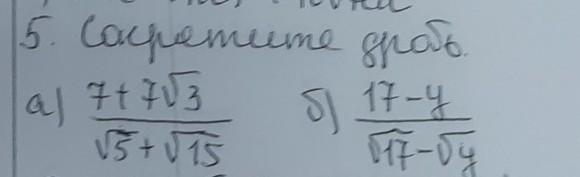 5. Сократите дробь.
а) (7+7√3)/(√5+√15) б) (17-y)/(√17-√y)